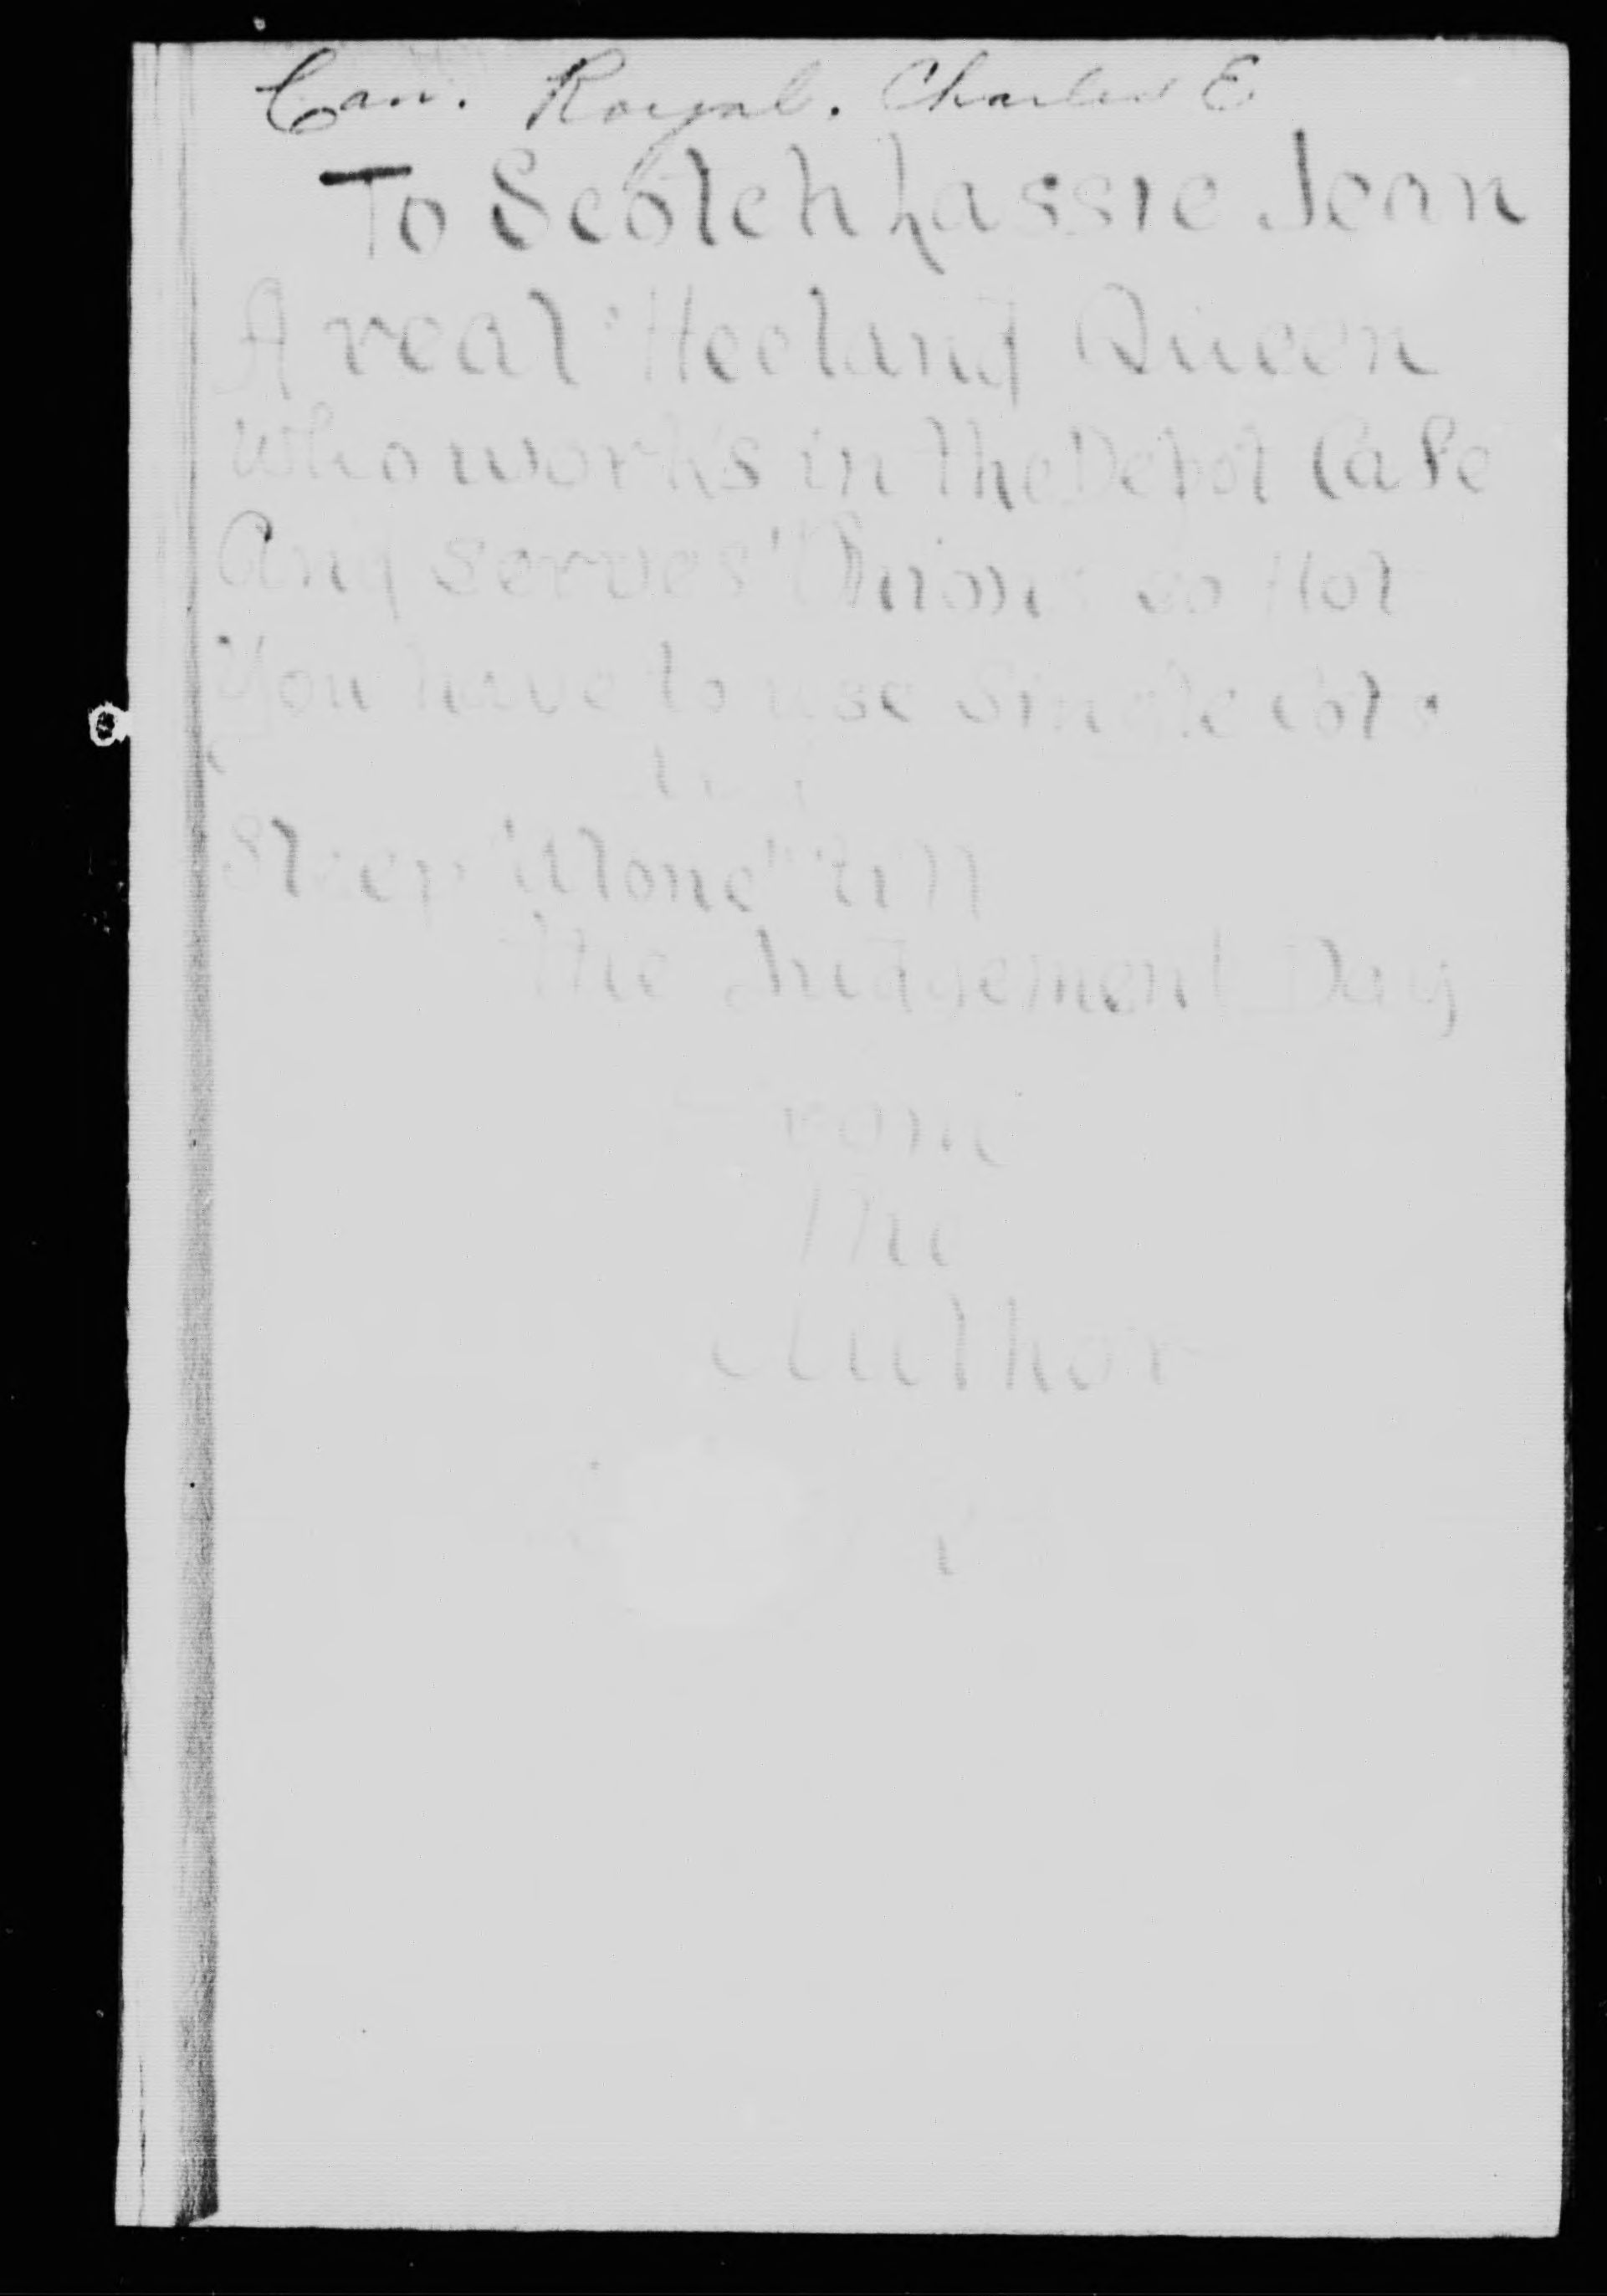 Can. Royal. Charles E
To Scotch Lassie Jean
A real "Heeland Queen
Who works in the Depot Cafe
And serves Onions so Hot
You have to use Single cots
Sleep "Alone" till
The Judgement Day
From
The
Author